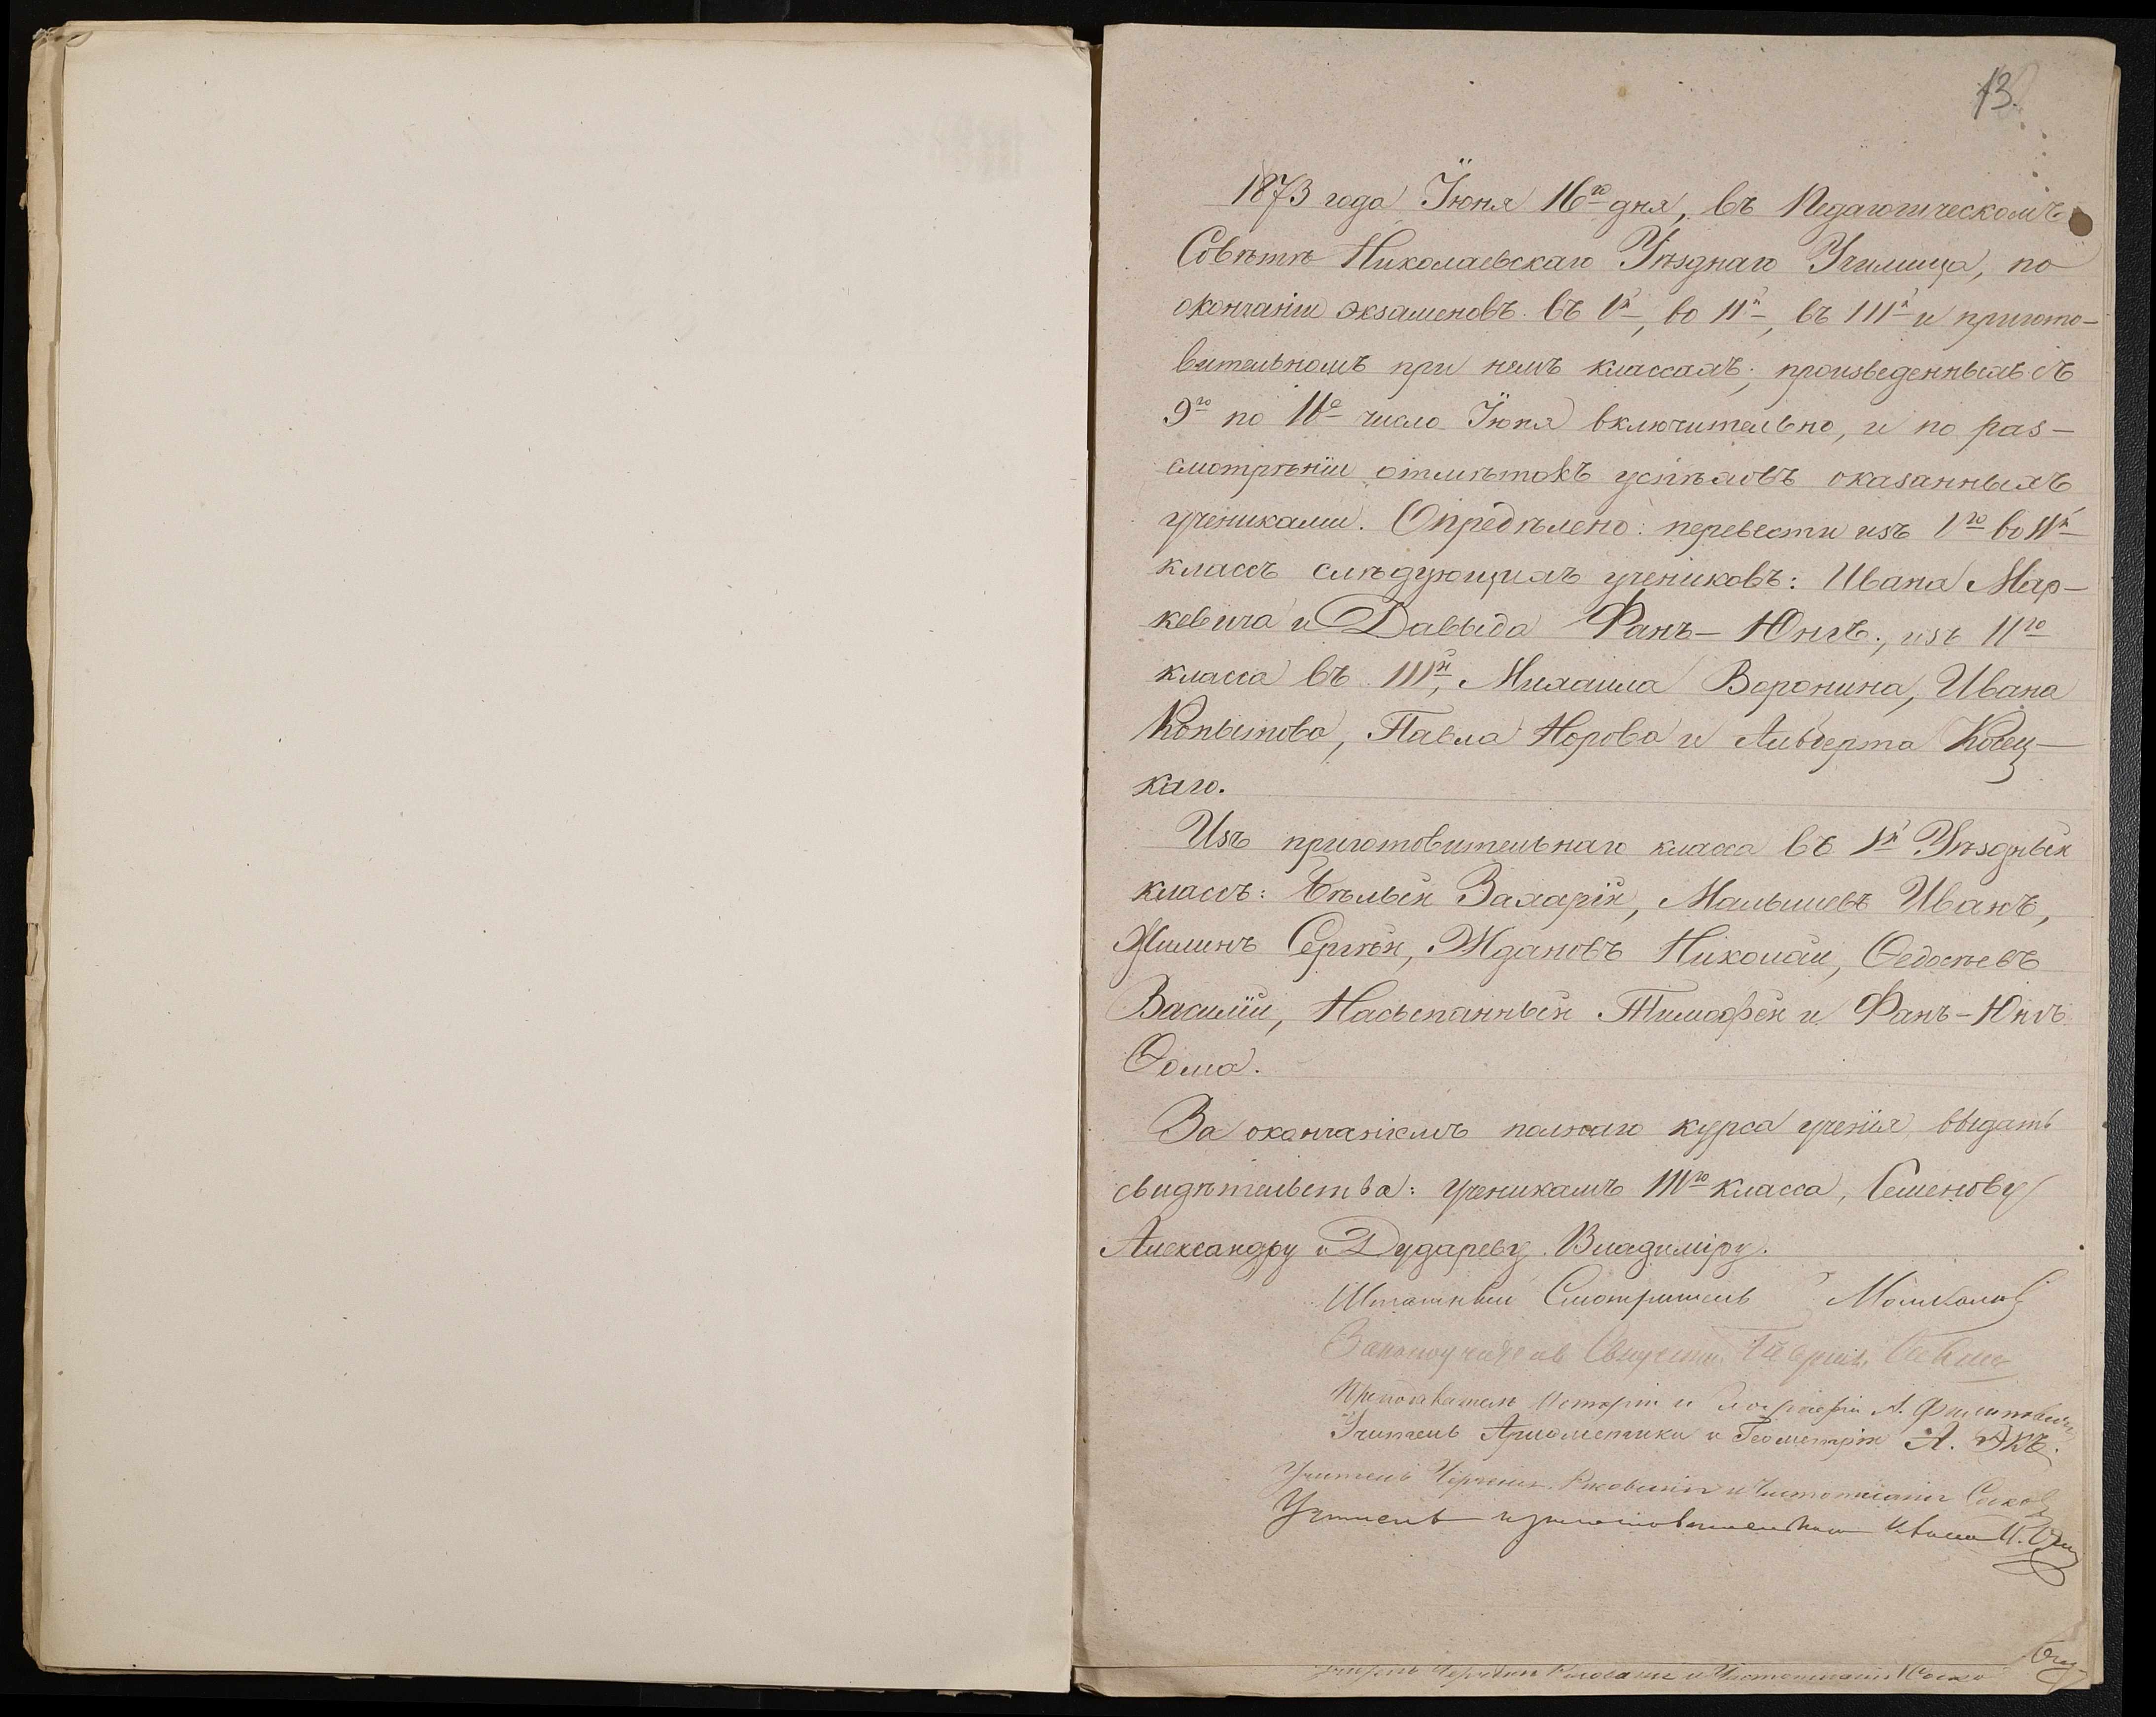 13.
1873 года Іюня 16го дня, въ Педагогическомъ
Совѣтѣ Николаевскаго Уѣзднаго Училища, по
окончаніи экзаменовъ въ Iй, во IIй, въ IIIй и пригото-
вительномъ при немъ классахъ, произведенныхъ съ
9го по 16е число Іюня включительно, и по раз-
смотрѣніи отмѣтокъ успѣховъ оказанныхъ
учениками. Опредѣлено: перевести изъ Iго во IIй
классъ слѣдующихъ учениковъ: Ивана Мар-
кевича и Давыда Фанъ-Юнгъ; изъ IIго
класса въ IIIй, Михаила Воронина, Ивана
Копытова, Павла Норова и Альберта Коец-
каго.
Изъ приготовительнаго класса въ Iй Уѣздный
классъ: Бѣлый Захарій, Малышевъ Иванъ,
Жилинъ Сергѣй, Ждановъ Николай, Ѳедосѣевъ
Василій, Насыпанный Тимофей и Фанъ-Юнгъ
Ѳома.
За окончаніемъ полнаго курса ученія выдать
свидѣтельства: ученикамъ IIIго класса, Семенову
Александру и Дудареву Владиміру.
Штатный Смотритель
Законоучитель Священникъ
Преподаватель Исторіи и Географіи А.
Учитель Ариѳметики и Геометріи А.
Учитель Черченія, Рисованія и Чистописанія
Учитель приготовительнаго класса
Учитель Черченія Рисованія и Чистописанія